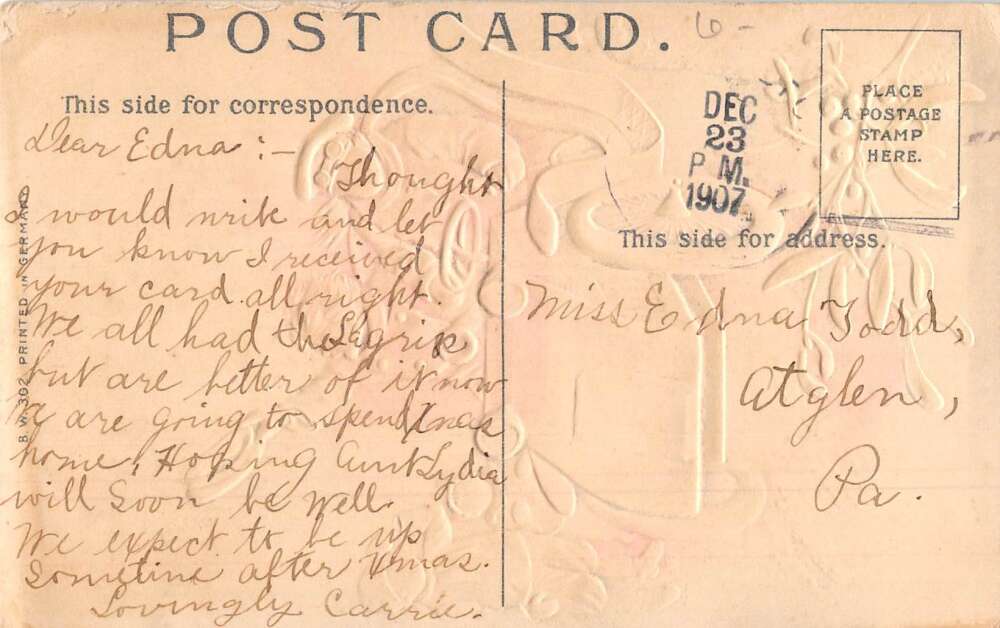 POST CARD.
6 -
This side for correspondence.
PLACE
A POSTAGE
STAMP
HERE.
DEC
23
P M.
1907.
This side for address.
Dear Edna :-
Thought
I would write and let
you know I received
your card all right.
We all had the Lagrip
but are better of it now
& are going to spend Xmas
home, Hoping Aunt Lydia
will soon be well.
We expect to be up
Sometime after Xmas.
Lovingly Carrie.
Miss Edna Todd,
Atglen,
Pa.
B.W. 302 PRINTED IN GERMANY